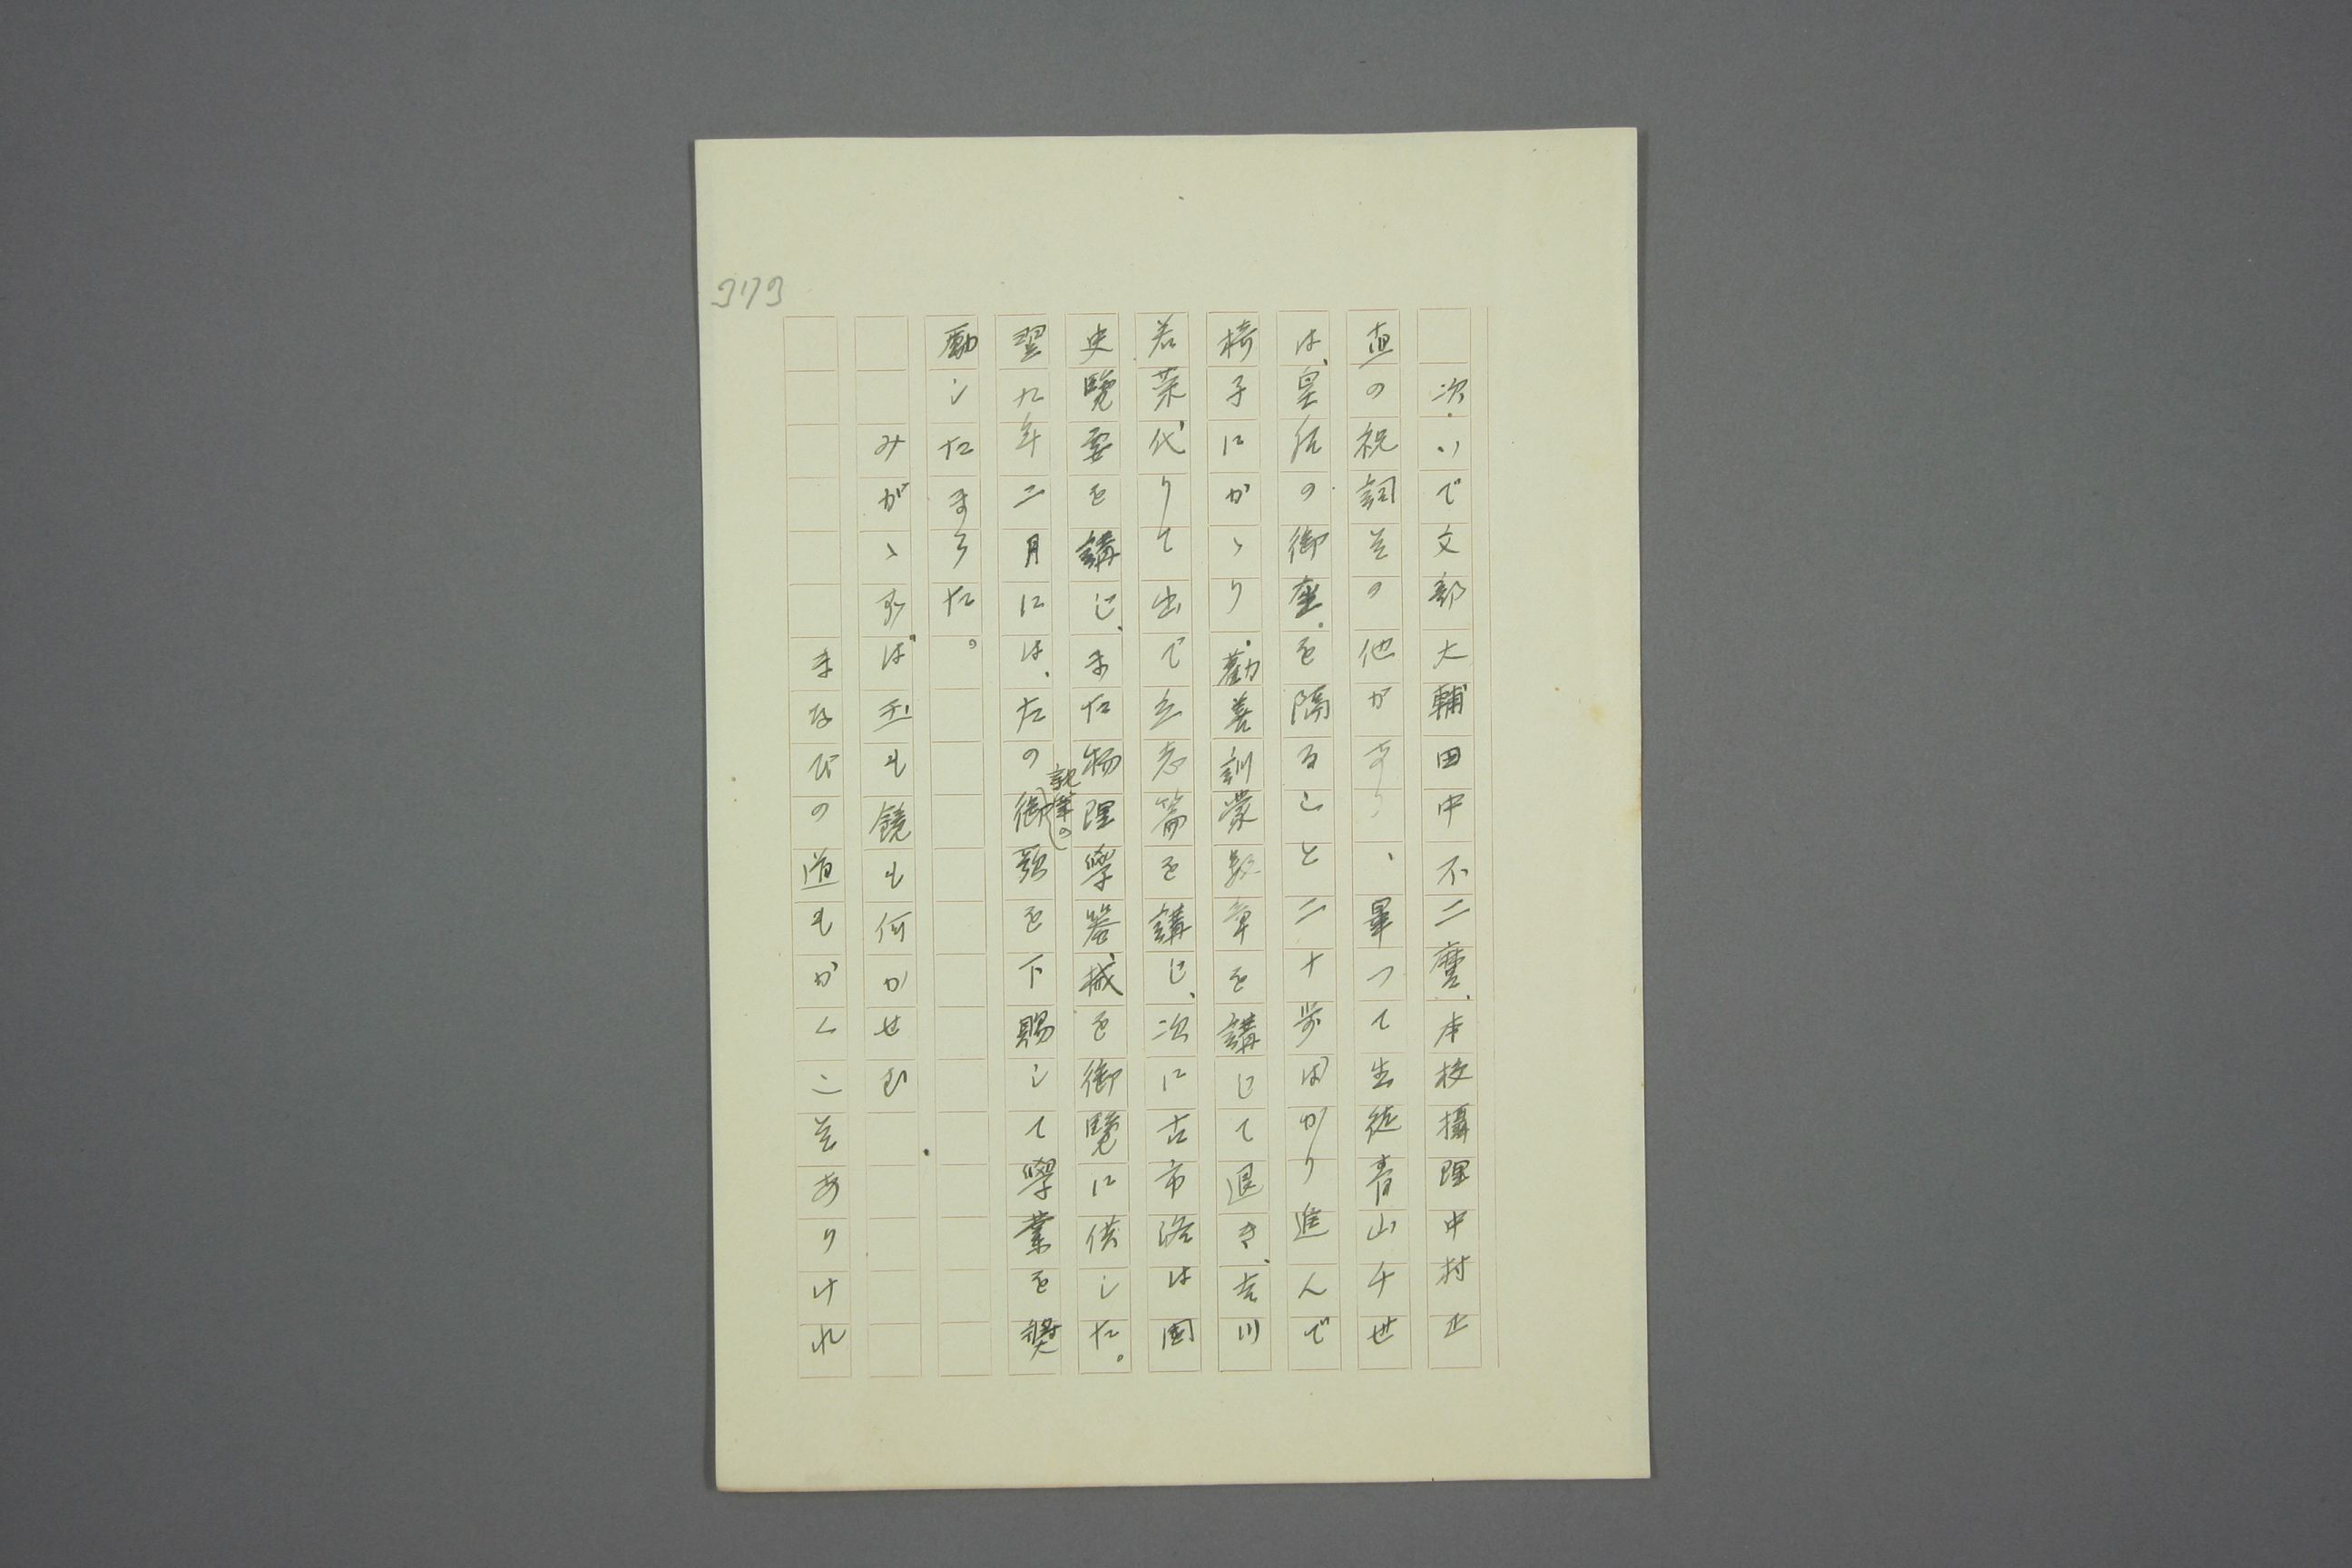 373
次いで文部大輔田中不二麿、本校攝理中村正
直の祝詞その他があり、畢つて生徒青山千世
は、皇后の御座を隔ること二十歩ばかり進んで
椅子にかゝり、勸善訓蒙数章を講じて退き、吉川
若菜代りて出で立志篇を講じ、次に古市治は國
史覽要を講じ、また物理學器械を御覽に供した。
翌九年二月には、左の御歌を下賜して學業を奬
親筆の
勵したまうた。
みがゝずば玉も鏡も何かせむ
まなびの道もかくこそありけれ